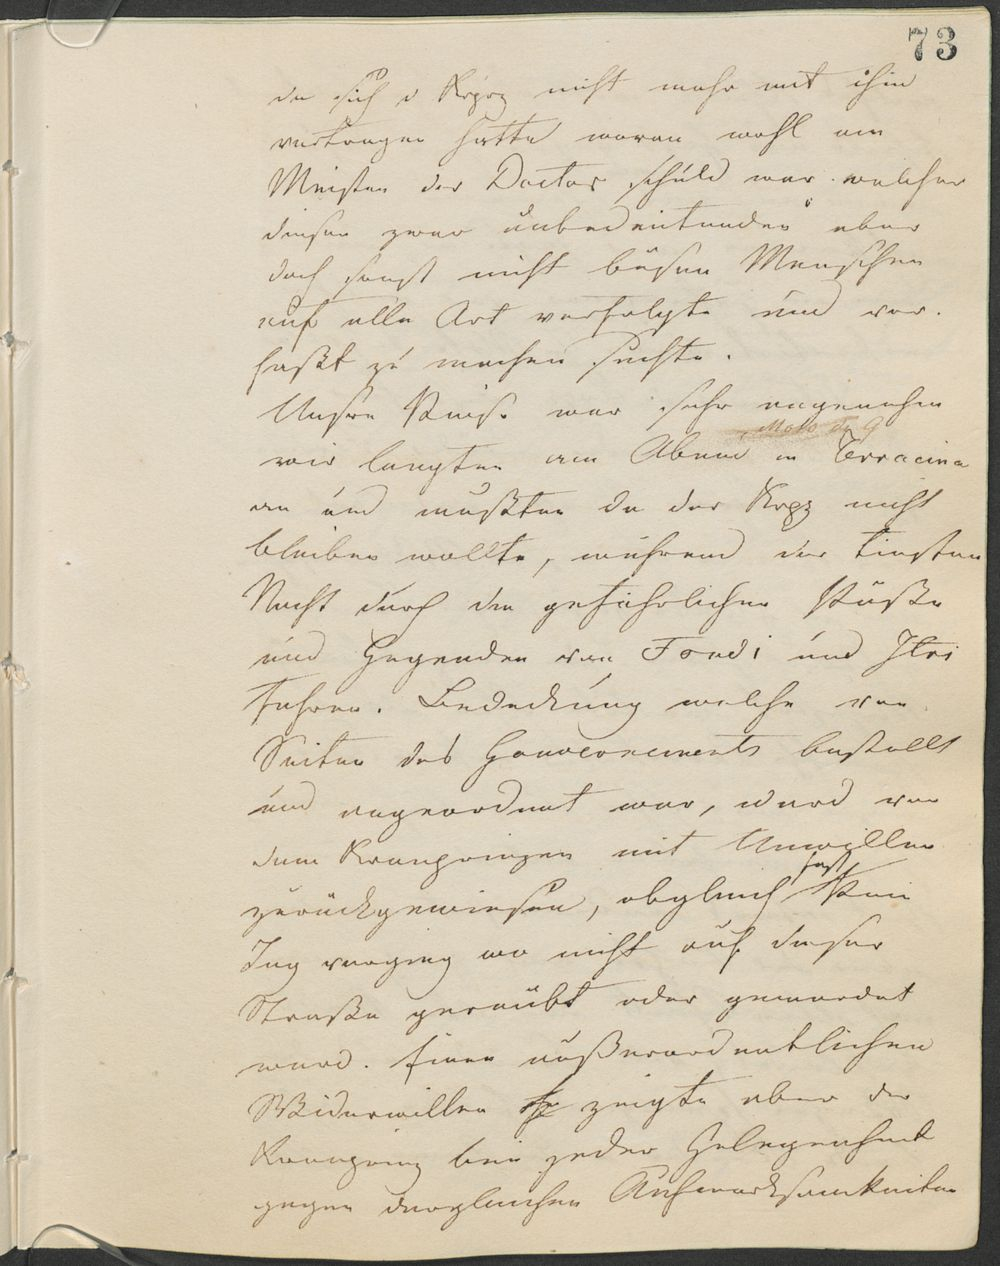 73
da sich d Krprz nicht mehr mit ihm
vertragen hatte woran wohl am
Meisten der Doctor schuld war. welcher
diesen zwar unbedeutenden aber
doch sonst nicht bösen Menschen
auf alle Art verfolgte und ver-
haßt zu machen suchte.
Unsre Reise war sehr angenehm
Molo di G
wir langten am Abend in Terracina
an und mußten da der Krpz nicht
bleiben wollte, während der tiefsten
Nacht durch die gefährlichen Pässe
und Gegenden von Fondi und Itri
fahren. Bedeckung welche von
Seiten des Gouvernements bestellt
und angeordnet war, ward von
dem Kronprinzen mit Unwillen
zurückgewiesen, obgleich fast kein
Tag verging wo nicht auf dieser
Straße geraubt oder gemordet
ward. Einen außerordentlichen
Widerwillen zeigte aber der
Kronprinz bei jeder Gelegenheit
gegen dergleichen Aufmerksamkeiten